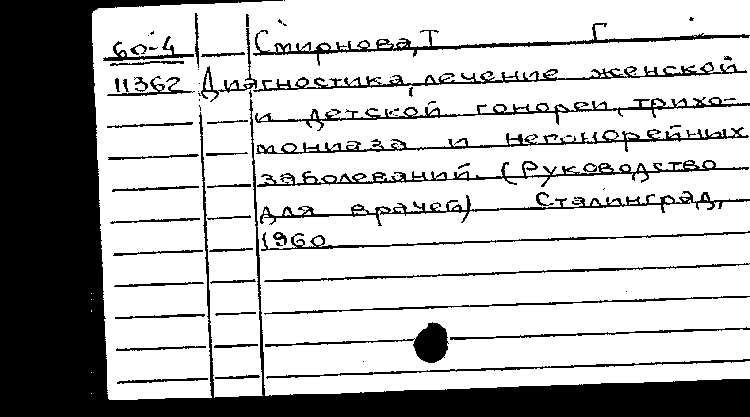 60-4 Смирнова, Т Г
11362 Диагностика, лечение женской
и детской гонореи, трихо-
мониаза и негонорейных
заболеваний. (Руководство
для врачей) Сталинград,
1960